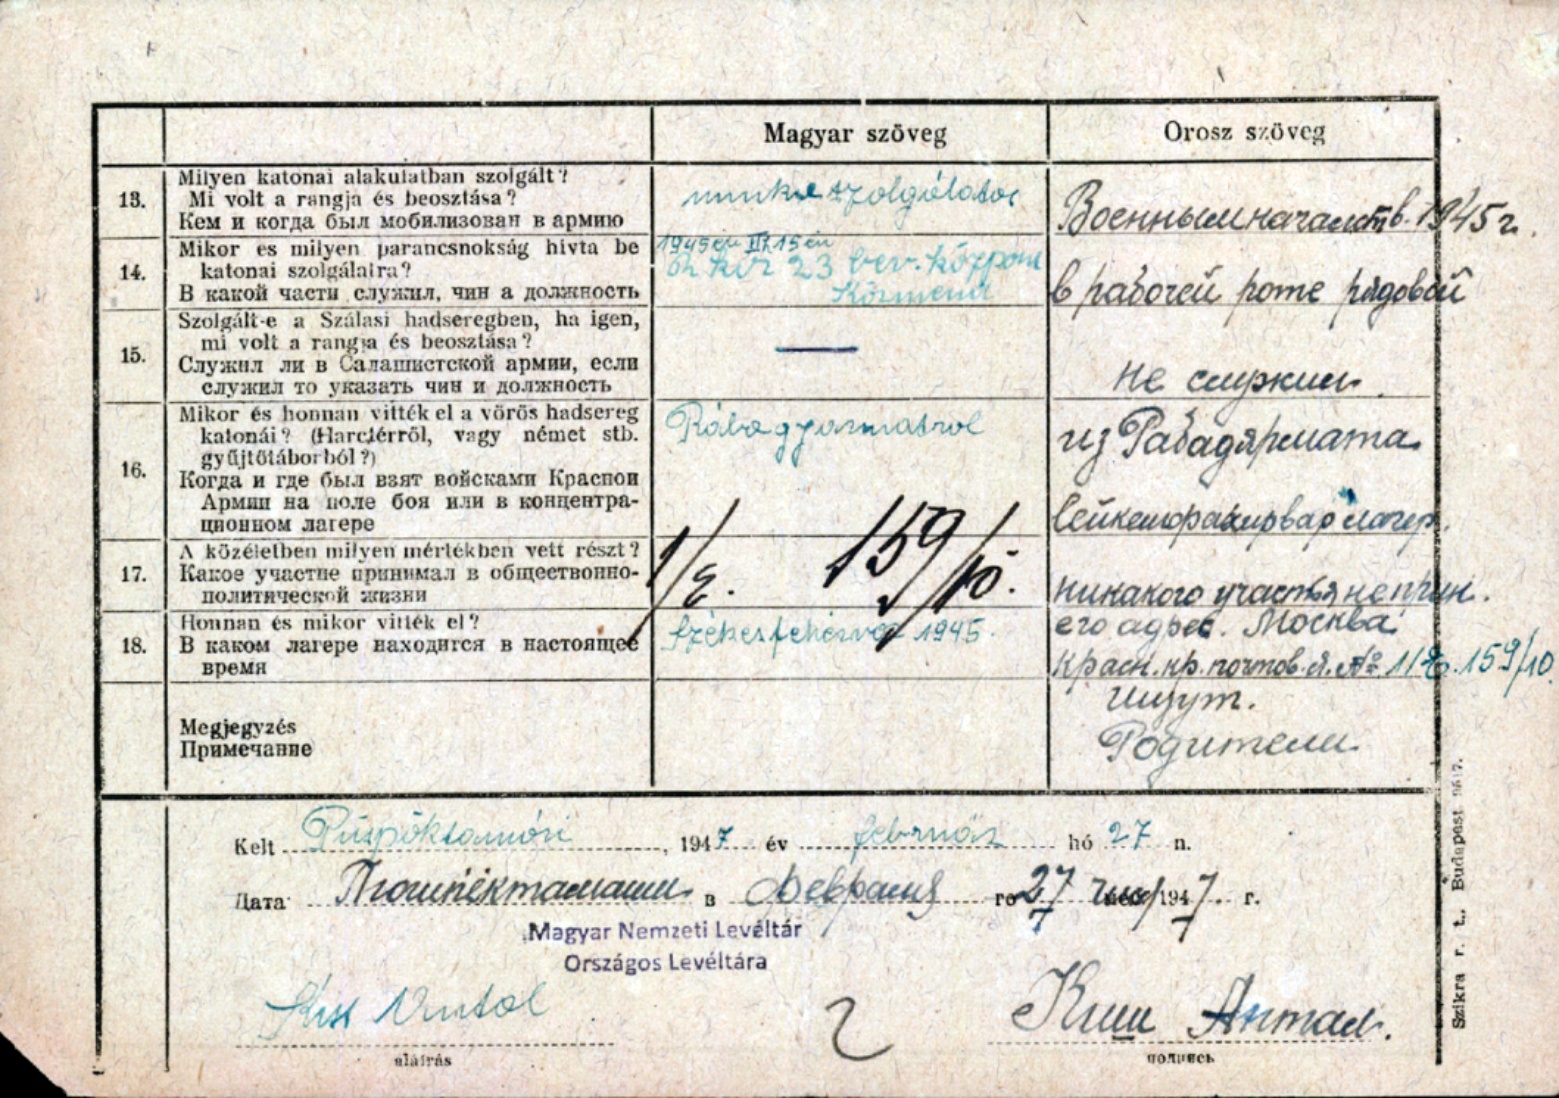 Magyar szöveg
Orosz szöveg
13.
Milyen katonai alakulatban szolgált?
Mi volt a rangja és beosztása?
Кем и когда был мобилизован в армию
munkaszolgálatos
Военным начальств. 1945 г.
14.
Mikor es milyen parancsnokság hivta be
katonai szolgálatra?
В какой части служил, чин а должность
1945 év III. 15 én
M. kir 23 bev. központ
Körmend
в рабочей роте рядовой
15.
Szolgált-e a Szálasi hadseregben, ha igen,
mi volt a rangja és beosztása?
Служил ли в Салашистской армии, если
служил то указать чин и должность
—
не служил.
16.
Mikor és honnan vitték el a vörös hadsereg
katonái? (Harctérről, vagy német stb.
gyűjtőtáborból?)
Когда и где был взят войсками Красной
Армии на поле боя или в концентра-
ционном лагере
Rábagyarmatról
из Рабадярмата
Сейкешфахирвар лагер.
17.
A közéletben milyen mértékben vett részt?
Какое участие принимал в общественно-
политической жизни
159/10.
никакого участья неприн.
18.
Honnan és mikor vitték el?
В каком лагере находится в настоящее
время
Székesfehérvár 1945.
его адрес. Москва
Красн. кр. почтов. я. № 159/10.
Megjegyzés
Примечание
ищут.
Родители
Kelt Püspöktamási, 1947 év február hó 27 n.
Дата в Февраля го 27 1947. г.
Magyar Nemzeti Levéltár
Országos Levéltára
Kiss Antal
Киш Антал.
aláírás
подпись
Szikra r. t., Budapest